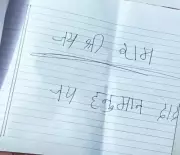 जय श्री राम
जय हनुमान